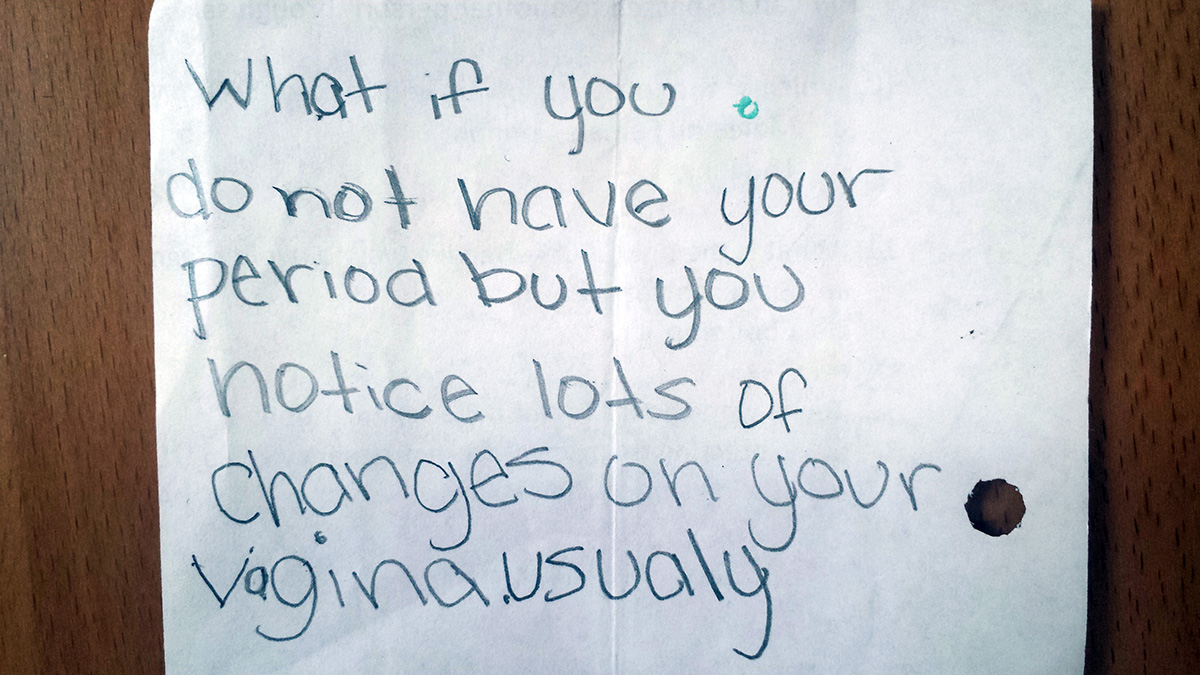 What if you
do not have your
period but you
notice lots of
changes on your
vagina.usualy